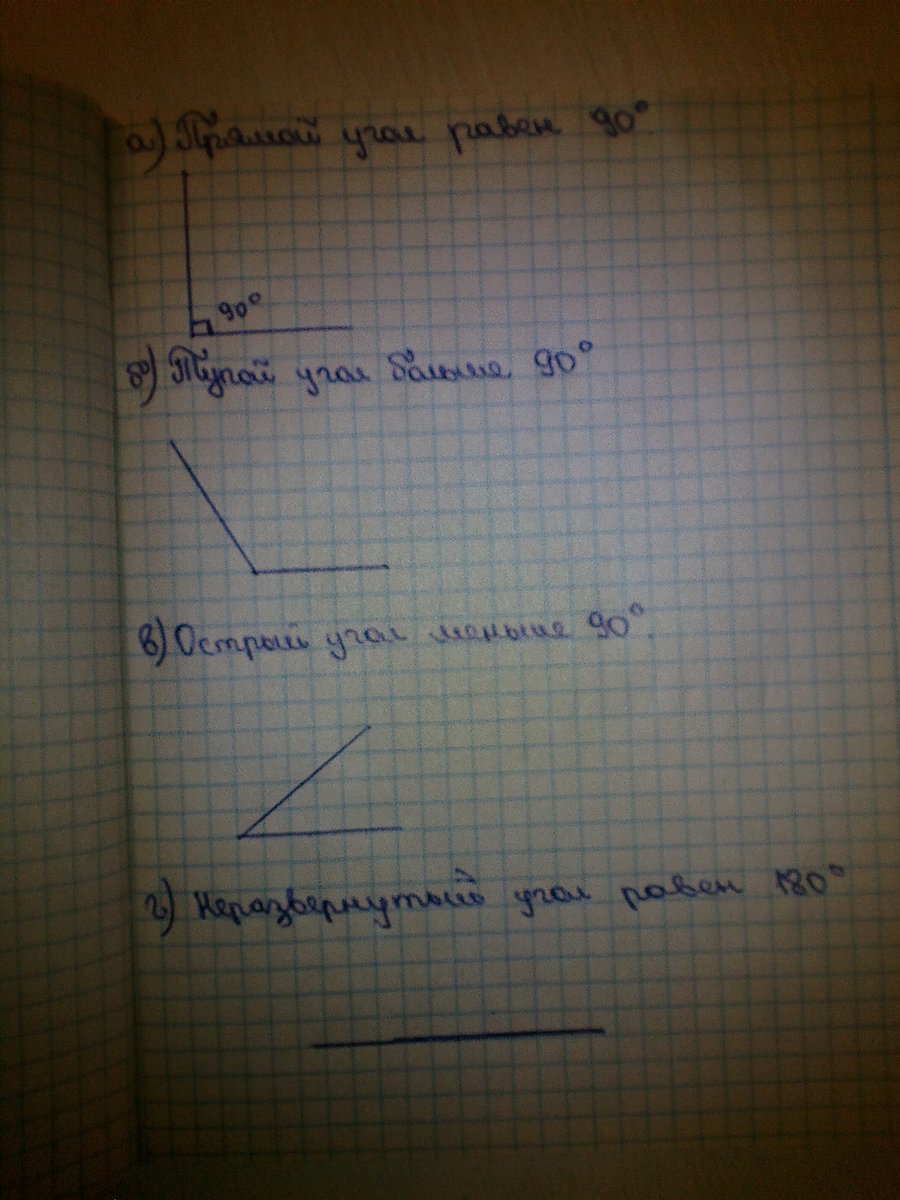 а) Прямой угол равен 90°.
90°
б) Тупой угол больше 90°
в) Острый угол меньше 90°.
г) Неразвернутый угол равен 180°